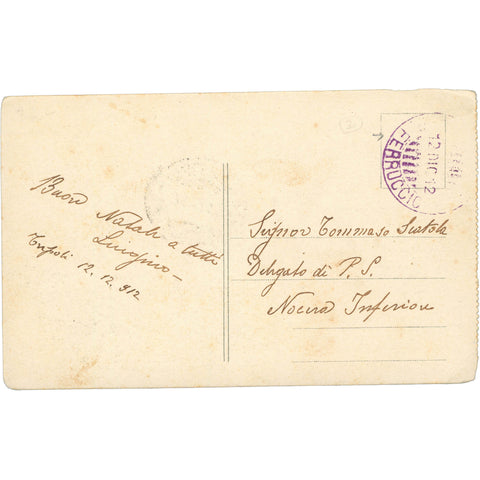 Buon Natale a tutti
Tripoli 12.12.912
Signor Tommaso Scatola
Delegato di P. S.
Nocera Inferiore
12 DIC 12
FERRUCCIO
2